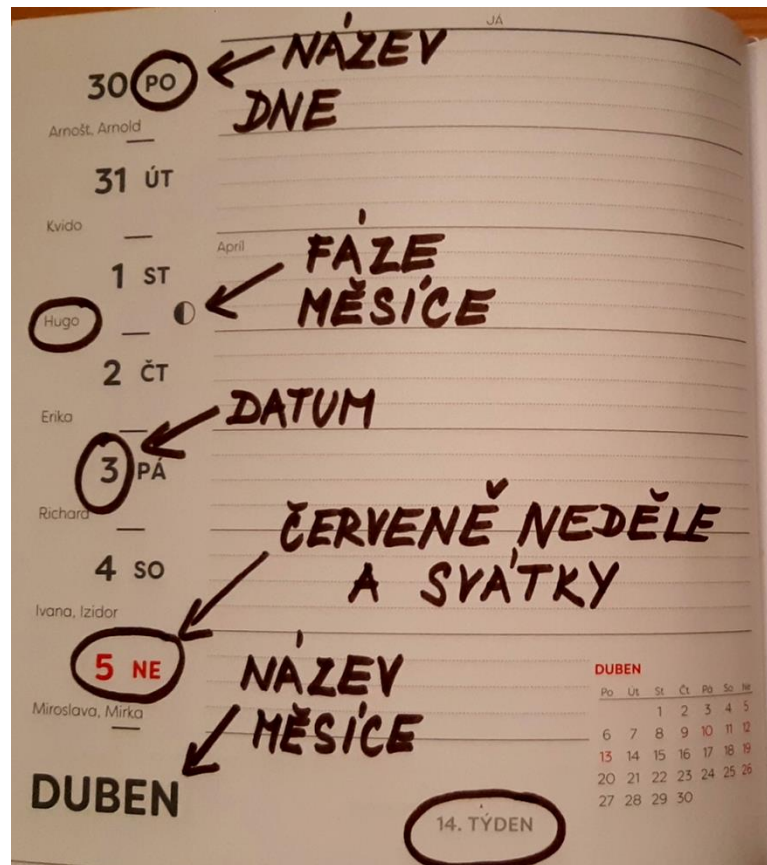 JÁ
30 PO
NÁZEV
DNE
Arnošt, Arnold
31 ÚT
Kvido
April
FÁZE
1 ST
MĚSÍCE
Hugo
2 ČT
DATUM
Erika
3 PÁ
Richard
ČERVENĚ NEDĚLE
A SVÁTKY
4 SO
Ivana, Izidor
5 NE
NÁZEV
MĚSÍCE
Miroslava, Mirka
DUBEN
14. TÝDEN
DUBEN
Po Út St Čt Pá So Ne
1 2 3 4 5
6 7 8 9 10 11 12
13 14 15 16 17 18 19
20 21 22 23 24 25 26
27 28 29 30